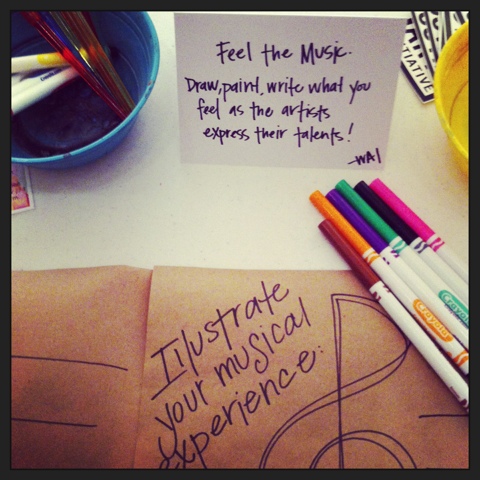 Feel the Music.
Draw, paint, write what you
feel as the artists
express their talents!
-WAI
ITIATIVE
Illustrate
your musical
experience:
Crayola
Crayola